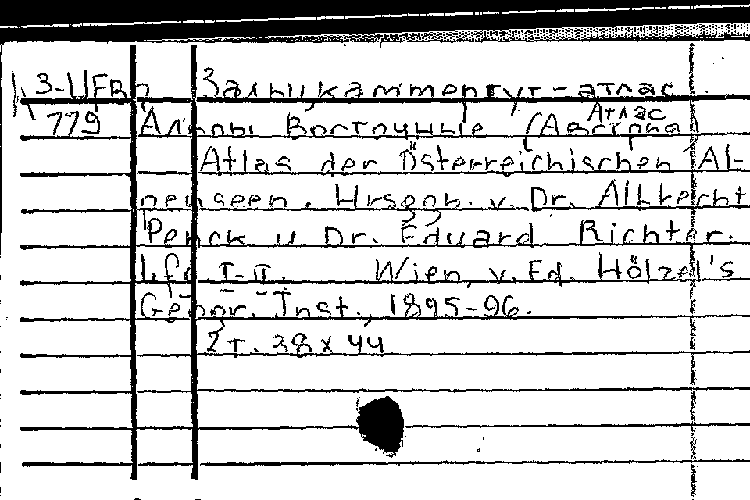 З-ЦЕВр Зальцкаммергут-атлас
779 Альпы Восточные (Австрия) Атлас
Atlas der Österreichischen Al-
penseen. Hrsggb. v. Dr. Albrecht
Penck u Dr. Eduard Richter.
Lfg I-II. Wien, v. Ed. Hölzel's
Geogr. Inst., 1895-96.
2т. 38x44